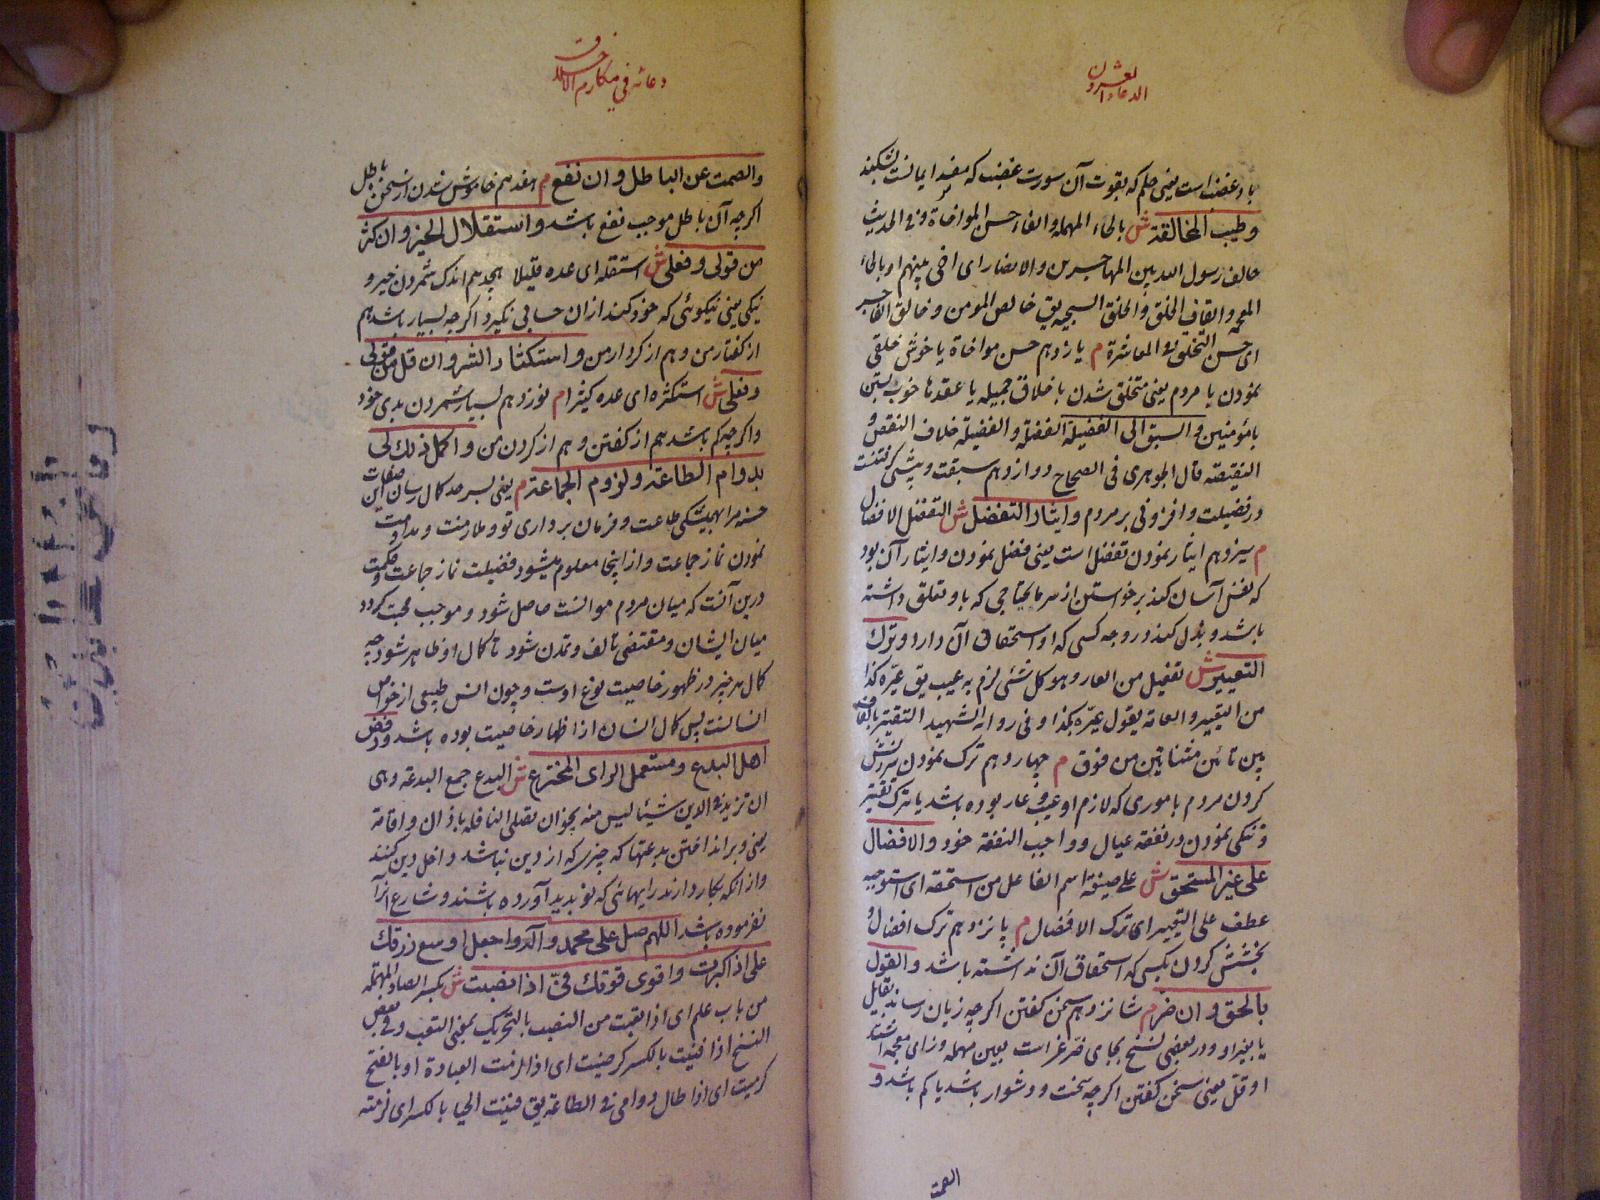 الدعاء العشرون
باد غضب است یعنی حلم که بقوت آن سورت غضب که مفسد ایمانست بشکند
وطیب المخالقة ش بالحاء المهملة والفاء حسن المواخاة وفی الحدیث
حالف رسول الله بین المهاجرین والانصار ای اخی بینهم او بالخاء
المعجمه والقاف الخلق والخلق السجیه یق خالص المومن وخالق الفاجر
ای حسن التخلق والمعاشرة م یازدهم حسن مواخاة یا خوش خلقی
نمودن با مردم یعنی متخلق شدن باخلاق جمیله یا عقدها خوب بستن
بامؤمنین والسبق الی الفضیلة الفضل والفضیلة خلاف النقص و
النقیصة قال الجوهری فی الصحاح دوازدهم سبقت وپیشی گرفتنست
در فضیلت وافزونی بر مردم وایثار التفضل ش التفضل الافضال
م سیزدهم ایثار نمودن تفضل است یعنی فضل نمودن وایثار آن بود
که نفس آسان کند برخواستن از سر مایحتاجی که باو تعلق داشته
باشد وبذل کند در وجه کسی که او استحقاق آن دارد وترک
التعییر ش تفعیل من العار وهو کل شئ لزم به عیب یق عیره کذا
من التعییر والعامة یقول عیره بکذا وفی روایة الشهید التقتیر بالقاف
بین تائین مثناتین من فوق م چهاردهم ترک نمودن سرزنش
کردن مردم باموری که لازم او عیب وعار بوده باشد یا ترک تقتیر
وتنگی نمودن در نفقه عیال وواجب النفقه خود والافضال
علی غیر المستحق ش علی صیغة اسم الفاعل من استحقه ای استوجبه
عطف علی التعییر ای ترک الافضال م پانزدهم ترک افضال و
بخشش کردن بکسی که استحقاق آن نداشته باشد والقول
بالحق وان عز م شانزدهم سخن گفتن اگرچه زیان رساند بقایل
یا بغیر او ودر بعضی نسخ بجای ضر عز است بعین مهمله وزای معجمه ای اشتد
او قل یعنی سخن گفتن اگرچه سخت ودشوار باشد یا کم باشد و
الصمت
دعائه فی مکارم الاخلاق
والصمت عن الباطل وان نفع م هفدهم خاموش شدن از سخن باطل
اگرچه آن باطل موجب نفع باشد واستقلال الخیر وان کثر
من قولی وفعلی ش استقله ای عده قلیلا هجدهم اندک شمردن خیر و
نیکی یعنی نیکوئی که خود کند از ان حسابی نگیرد اگرچه بسیار باشد هم
از گفتار من وهم از کردار من واستکثار الشر وان قل من قولی
وفعلی ش استکثره ای عده کثیرا م نوزدهم بسیار شمردن بدی خود
واگرچه کم باشد هم از گفتن وهم از کردن من واکمل ذلک لی
بدوام الطاعة ولزوم الجماعة م یعنی بسر حد کمال رسان این صفات
حسنه مرا بهمیشگی طاعت وفرمان برداری تو وملازمت ومداومت
نمودن نماز جماعت واز اینجا معلوم میشود فضیلت نماز جماعت وحکمت
درین آنست که میان مردم موانست حاصل شود وموجب محبت گردد
میان ایشان ومقتضی تالف وتمدن شود تا کمال او ظاهر شود چه
کمال هر چیز در ظهور خاصیت نوع اوست وچون انس طبیعی از خواص
انسانست پس کمال انسان از اظهار خاصیت بوده باشد ورفض
اهل البدع ومستعمل الرای المخترع ش البدع جمع البدعة وهی
ان تزید فی الدین شیئا لیس منه نحو ان تصلی النافلة باذان واقامة
یعنی وبرانداختن بدعتها که چیزی که از دین نباشد داخل دین کنند
واز آنکه بکار دارند رایهائی که نو پدید آورده باشند وشارع آنرا
نفرموده باشد اللهم صل علی محمد وآله واجعل اوسع رزقک
علی اذا کبرت واقوی قوتک فی اذا نصبت ش بکسر الصاد المهملة
من باب علم ای اذا تعبت من النصب بالتحریک بمعنی التعب وفی بعض
النسخ اذا قنیت بالکسر کرضیت ای اذا لزمت العبادة او بالفتح
کرمیت ای اذا طال دوامی فی الطاعة یق قنیت الحیا بالکسر ای لزمته